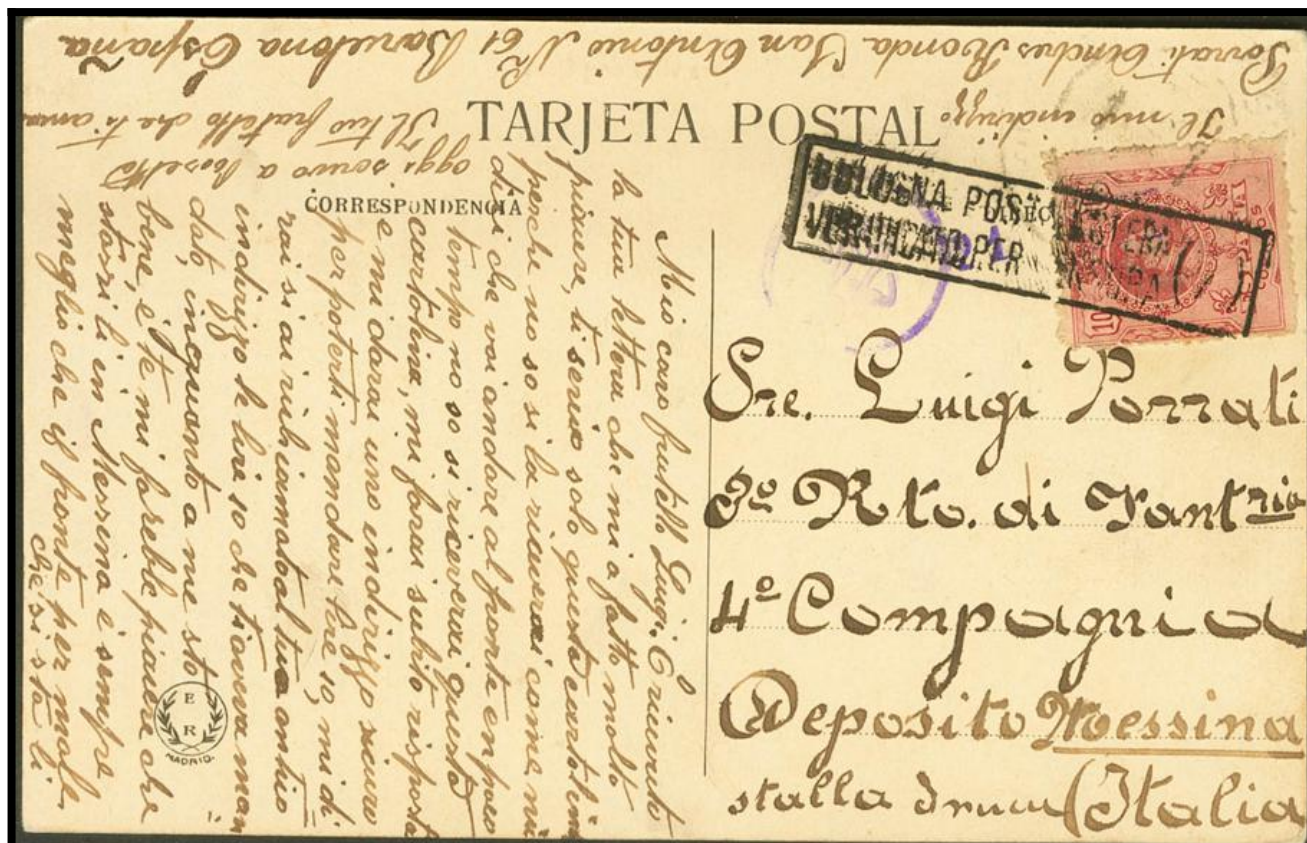 TARJETA POSTAL
CORRESPONDENCIA
BOLOGNA POSTA ESTERA
VERIFICATO PER CENSURA
10
Sre. Luigi Porrati
3º Rto. di Fant ria
4ª Compagnia
Deposito Messina
stalla (Italia
Mio caro fratello Luigi. O ricevuto
la tua lettera che mi a fatto molto
piacere, ti scrivo solo questa cartolina
perche no so si la riceverai come mi
dici che vai andare al fronte en poco
tempo no so si riceverai questa
cartolina, mi farai subito risposta
e mi darai uno indirizzo sicuro
per poterti mandare lire 10, mi di
rai si ai richiamato al tuo anthio
indirizzo le lire 10 che ti aveva man
dato, inquanto a me sto
bene, e te mi farebbe piacere che
stassi li in Messina è sempre
meglio che il fronte per male
che si sta li
oggi scrivo a
Il tuo fratello che ti ama
Il mio indirizzo
Porrati Andres Ronda San Antonio Nº 61 Barcelona España
E
R
MADRID.